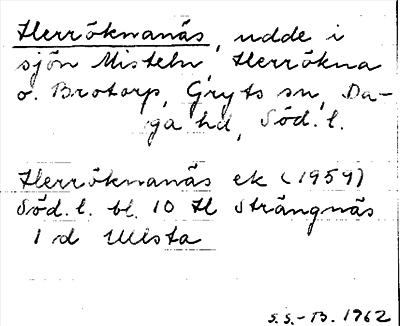 Herröknanäs, udde i
sjön Misteln, Herrökna
o. Brotorp, Gryts sn, Da-
ga hd, Söd. l.
Herröknanäs ek (1959)
Söd. l. bl. 10 H Strängnäs
1 d Ulsta
S.S.-B. 1962